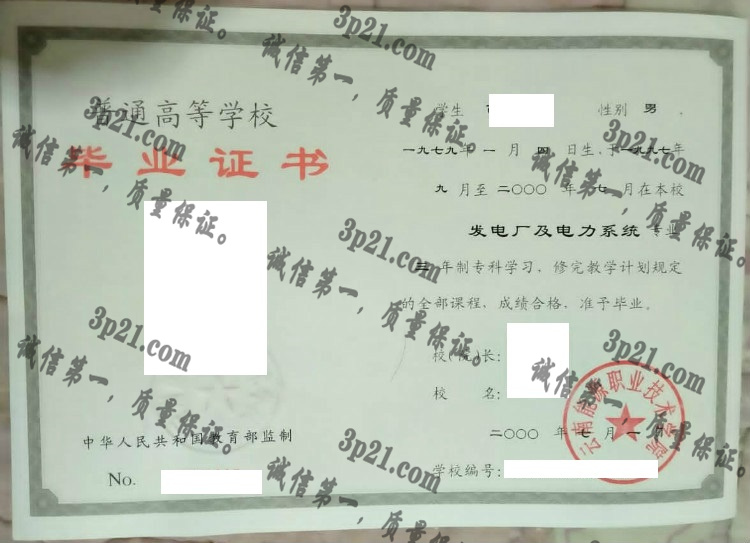 普通高等学校
毕业证书
中华人民共和国教育部监制
No.
学生 性别 男
一九七九年 一 月 四 日生，于一九九七年
九 月至 二〇〇〇 年 七 月在本校
发电厂及电力系统 专业
三 年制专科学习，修完教学计划规定
的全部课程，成绩合格，准予毕业。
校(院)长：
校 名：
二〇〇〇 年 七 月 一 日
学校编号：
云南能源职业技术学院
3p21.com
诚信第一，质量保证。
3p21.com
诚信第一，质量保证。
3p21.com
诚信第一，质量保证。
3p21.com
诚信第一，质量保证。
3p21.com
诚信第一，质量保证。
3p21.com
诚信第一，质量保证。
3p21.com
诚信第一，质量保证。